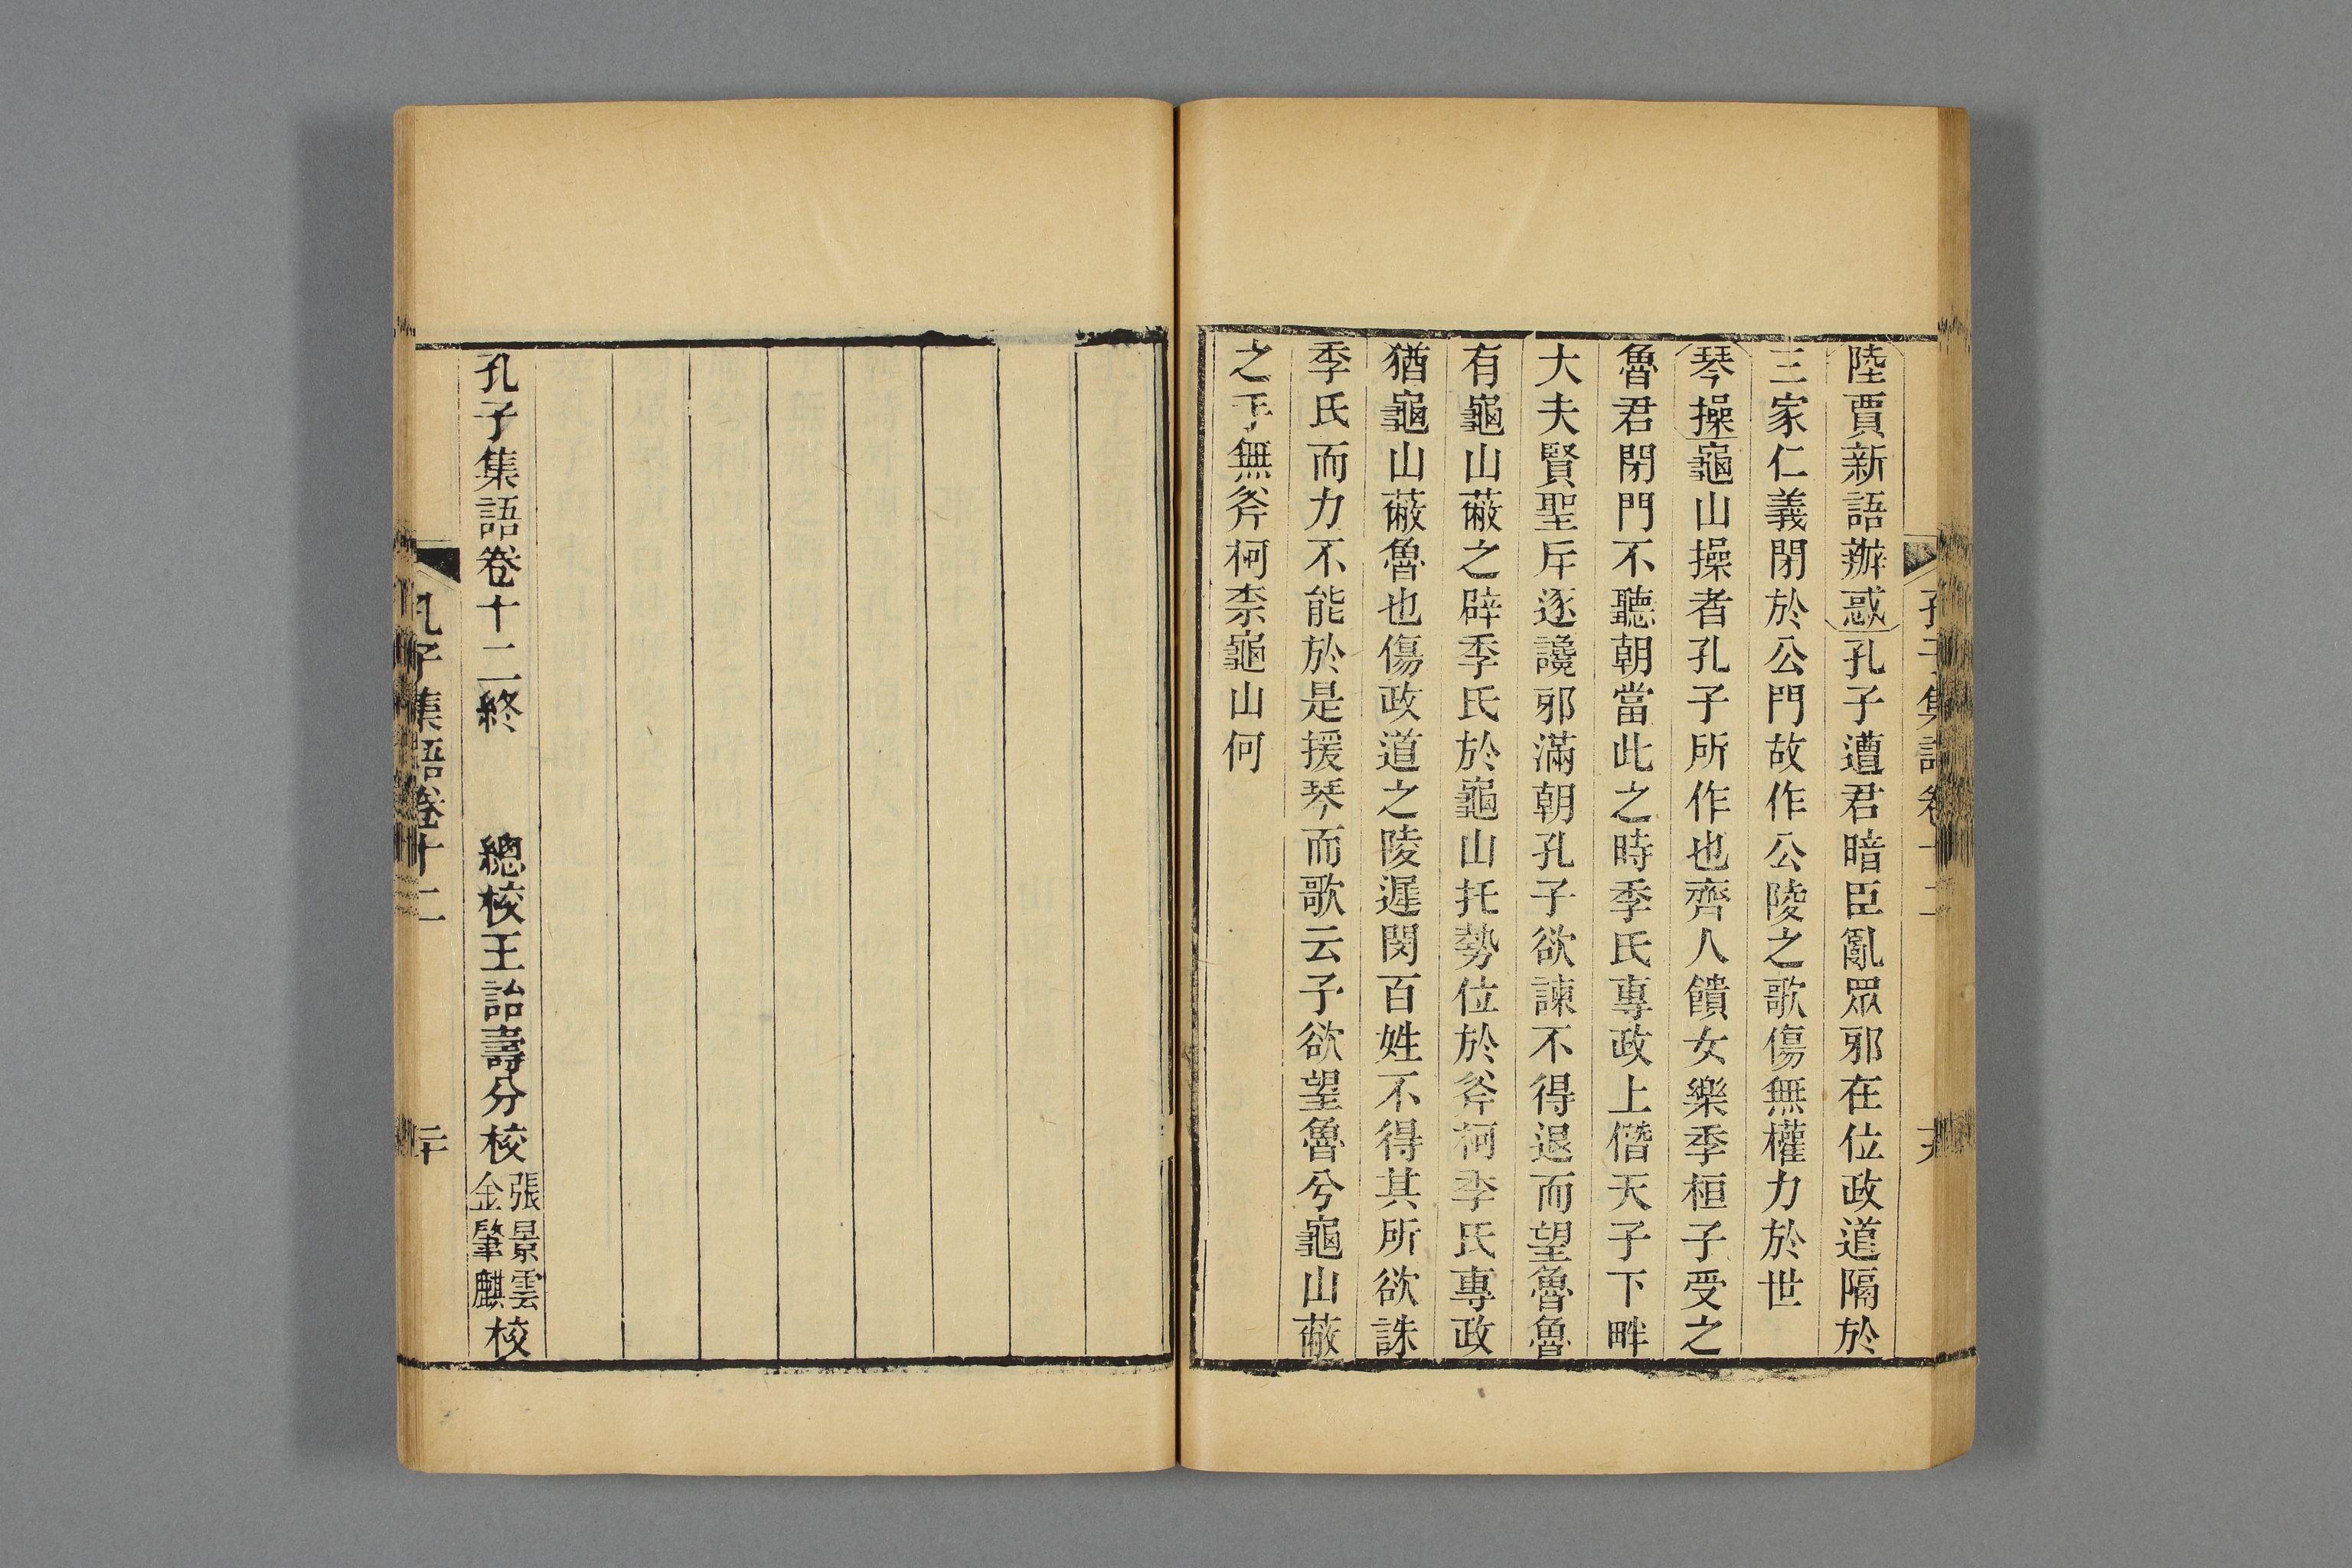 陸賈新語辦惑孔子遭君暗臣亂眾邪在位政道隔於
三家仁義閉於公門故作公陵之歌傷無權力於世
琴操龜山操者孔子所作也齊人饋女樂季桓子受之
魯君閉門不聽朝當此之時季氏專政上僭天子下畔
大夫賢聖斥逐讒邪滿朝孔子欲諫不得退而望魯魯
有龜山蔽之辟季氏於龜山托勢位於斧柯季氏專政
猶龜山蔽魯也傷政道之陵遲閔百姓不得其所欲誅
季氏而力不能於是援琴而歌云予欲望魯兮龜山蔽
之手無斧柯柰龜山何
孔子集語卷十二終 總校王詒壽分校張景雲金肇麒校
孔子集語卷十二 二十